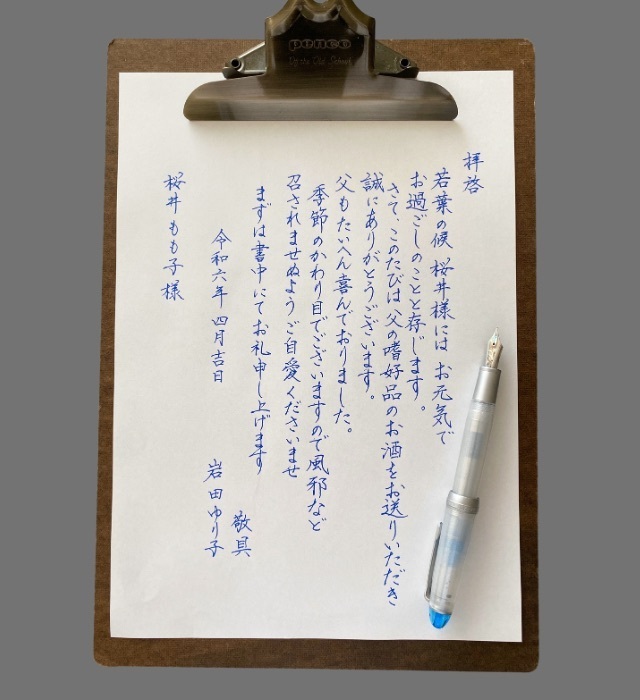 拝啓
若葉の候 桜井様には お元気で
お過ごしのことと存じます。
さて、このたびは父の嗜好品のお酒をお送りいただき
誠にありがとうございます。
父もたいへん喜んでおりました。
季節のかわり目でございますので風邪など
召されませぬようご自愛くださいませ
まずは書中にてお礼申し上げます
敬具
令和六年 四月吉日
岩田ゆり子
桜井もも子様